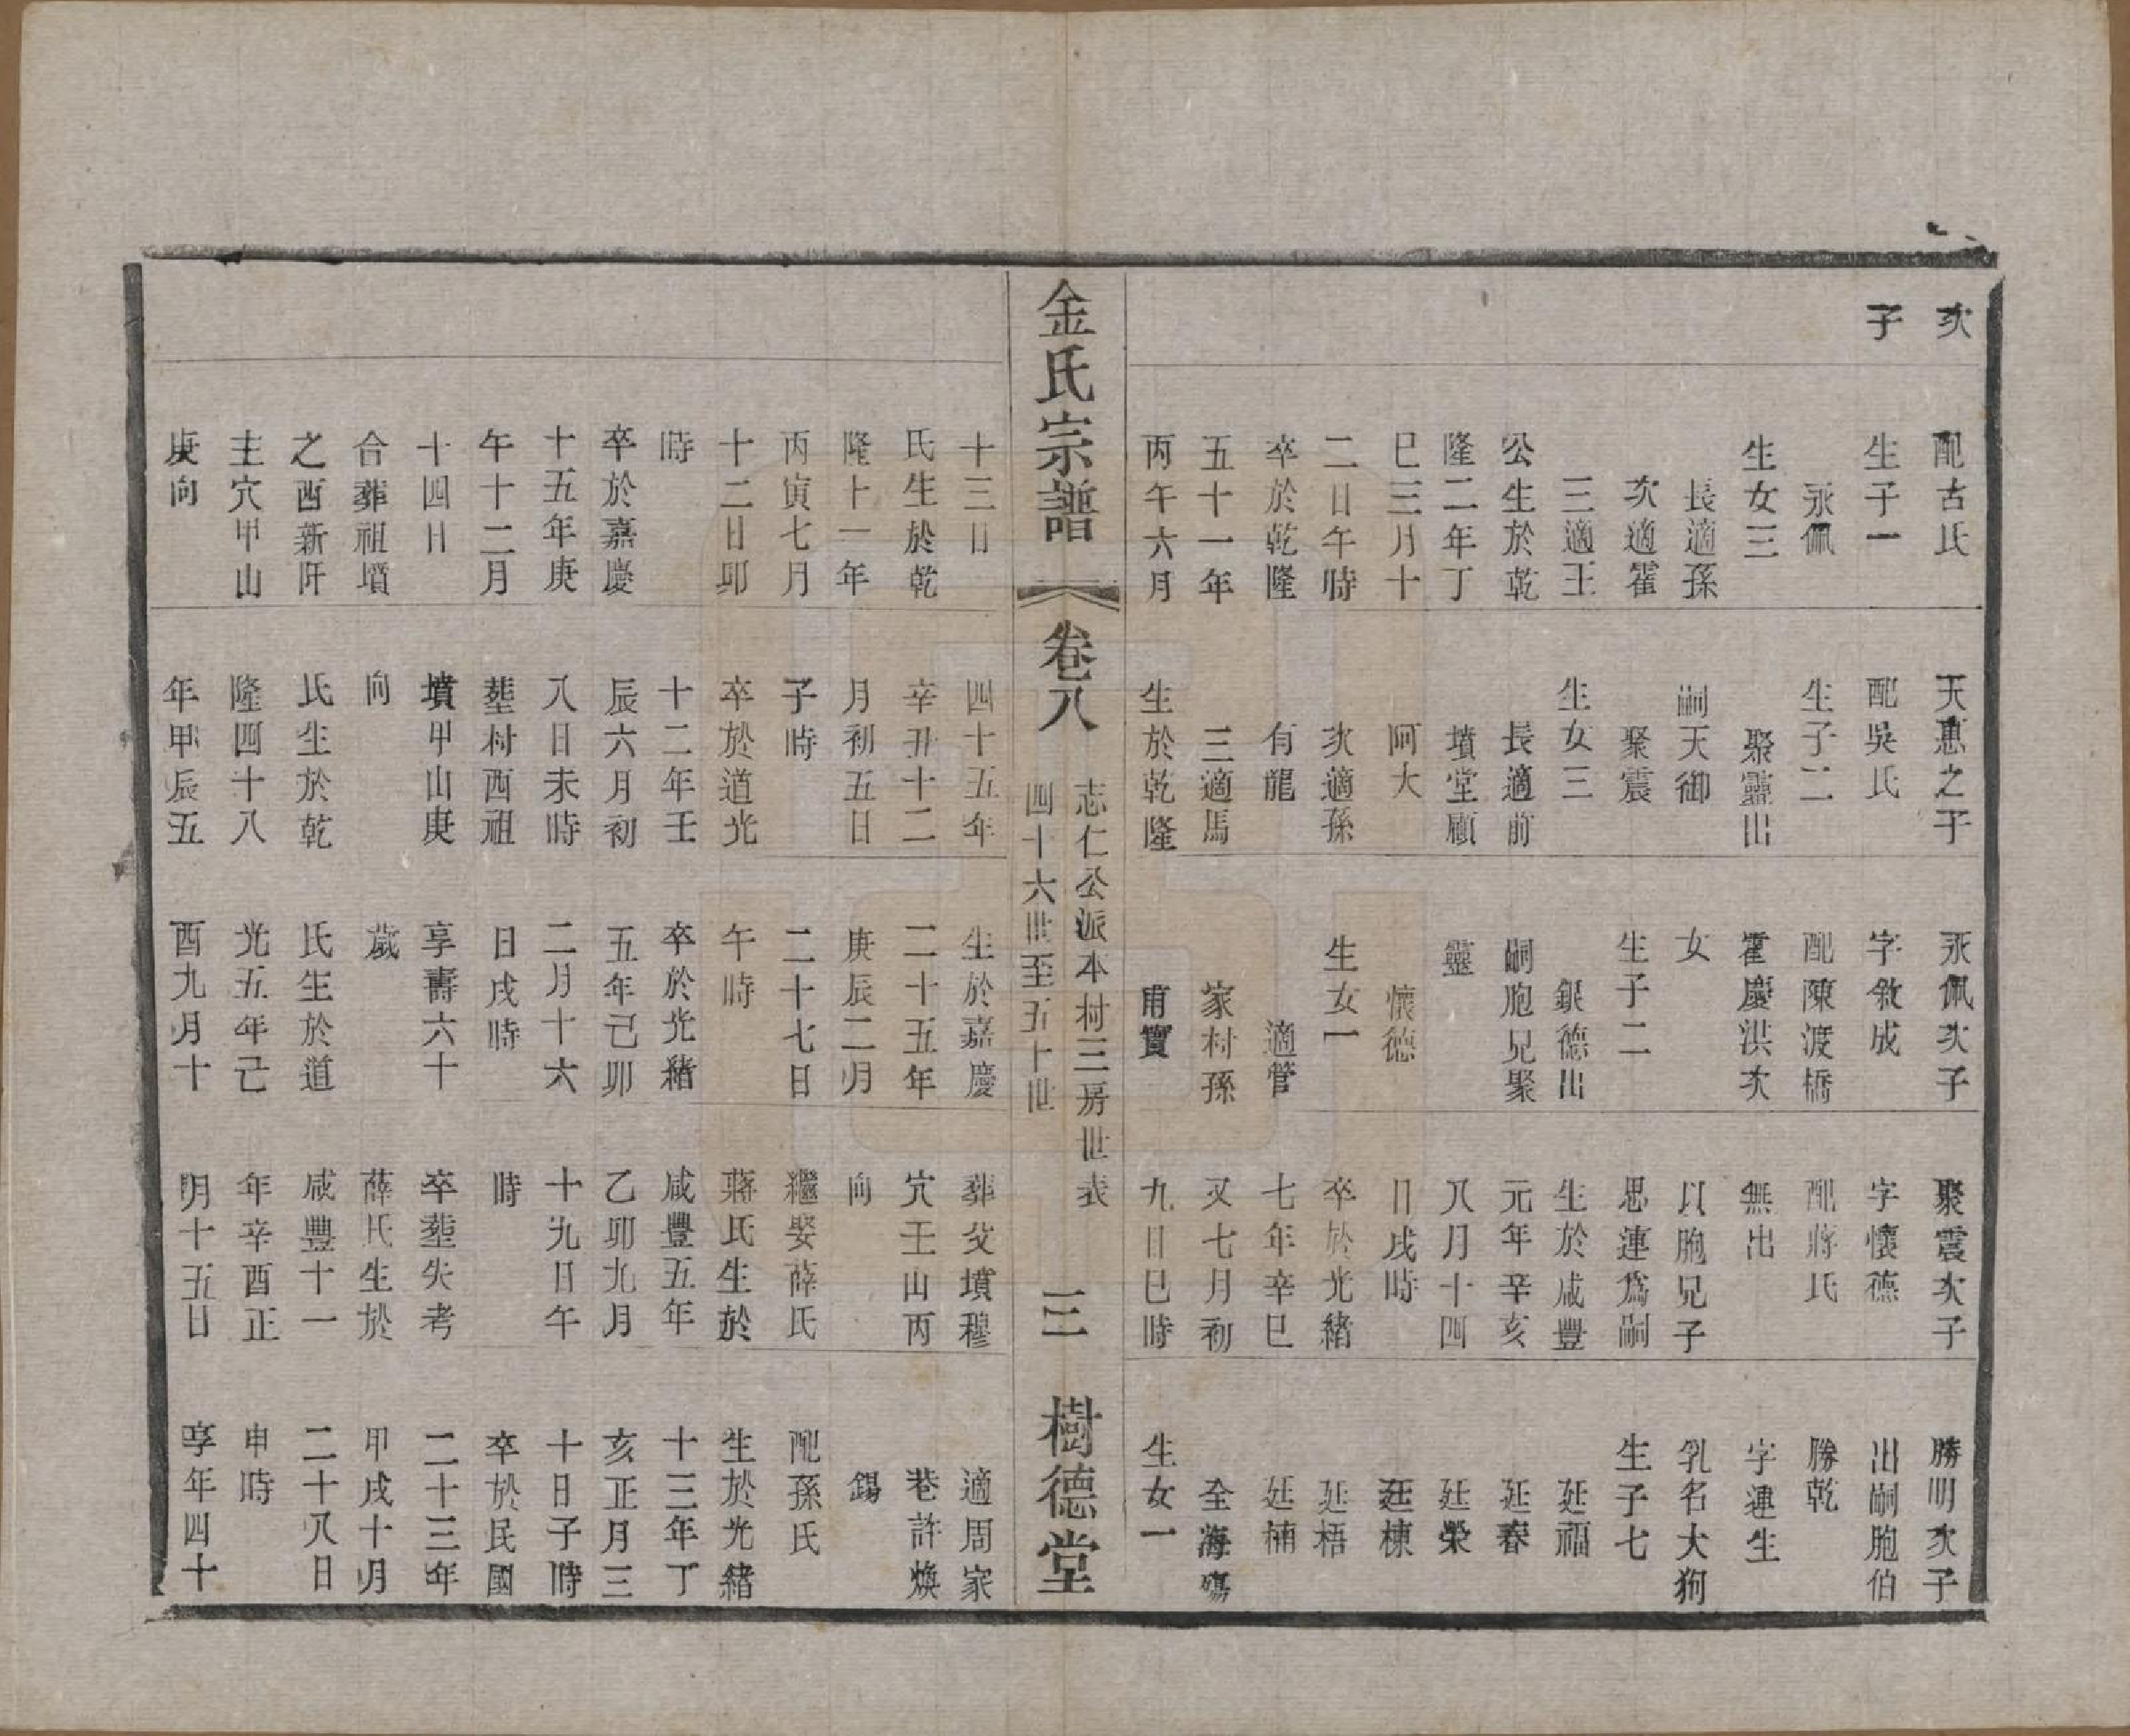 金氏宗譜
卷八
志仁公派本村三房世表
四十六世至五十世
三
樹德堂
次
子
配古氏
生子一
永佩
生女三
長適孫
次適霍
三適王
公生於乾
隆二年丁
巳三月十
二日午時
卒於乾隆
五十一年
丙午六月
十三日
氏生於乾
隆十一年
丙寅七月
十二日卯
時
卒於嘉慶
十五年庚
午十二月
十四日
合葬祖墳
之西新阡
主穴甲山
庚向
天惠之子
配吳氏
生子二
聚靈出
嗣天御
聚震
生女三
長適前
墳堂顧
阿大
次適孫
有龍
三適馬
生於乾隆
四十五年
辛丑十二
月初五日
子時
卒於道光
十二年壬
辰六月初
八日未時
塟村西祖
墳甲山庚
向
氏生於乾
隆四十八
年甲辰五
永佩次子
字敘成
配陳渡橋
霍慶洪次
女
生子二
銀德出
嗣胞兄聚
靈
懷德
生女一
適管
家村孫
甫寶
生於嘉慶
二十五年
庚辰二月
二十七日
午時
卒於光緒
五年己卯
二月十六
日戌時
享壽六十
歲
氏生於道
光五年己
酉九月十
聚震次子
字懷德
配蔣氏
無出
以胞兄子
思連為嗣
生於咸豐
元年辛亥
八月十四
日戌時
卒於光緒
七年辛巳
又七月初
九日巳時
葬父墳穆
穴壬山丙
向
繼娶薛氏
蔣氏生於
咸豐五年
乙卯九月
十九日午
時
卒塟失考
薛氏生於
咸豐十一
年辛酉正
月十五日
勝明次子
出嗣胞伯
勝乾
字連生
乳名大狗
生子七
延福
延春
廷榮
廷棟
延梧
延楠
全海殤
生女一
適周家
巷許煥
錫
配孫氏
生於光緒
十三年丁
亥正月三
十日子時
卒於民國
二十三年
甲戌十月
二十八日
申時
享年四十